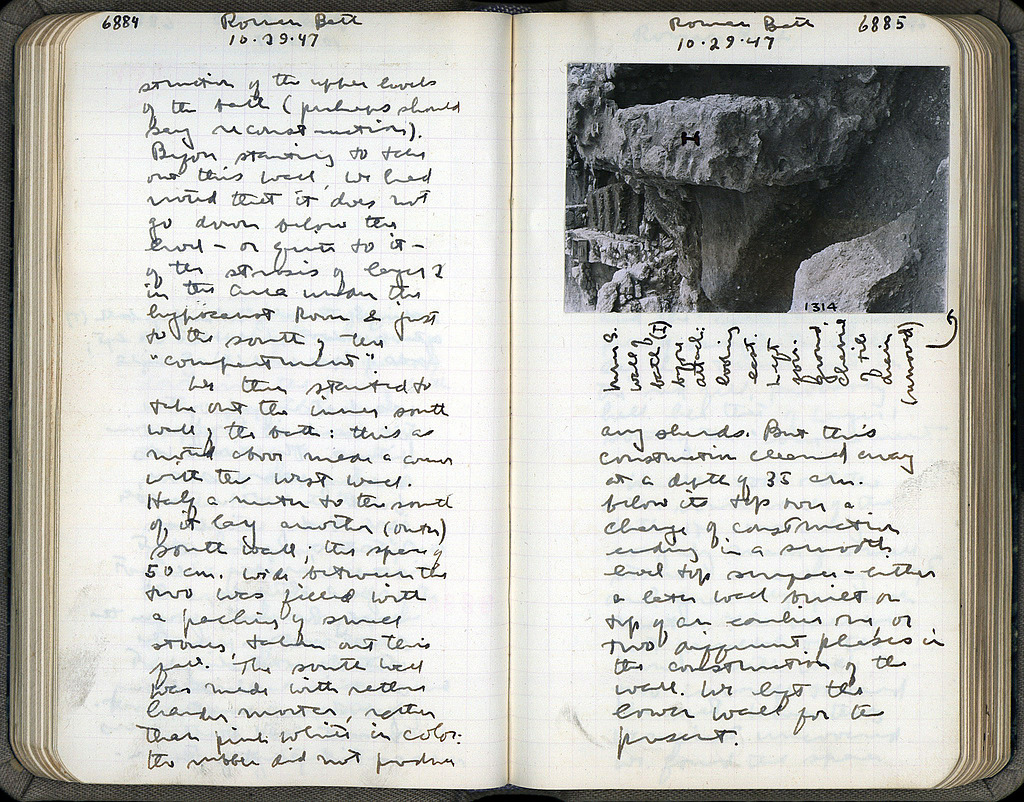 6884
Roman Bath
10.29.47
struction of the upper levels
of the bath (perhaps should
say reconstruction).
Before starting to take
out this wall, we had
noted that it does not
go down below the
level – or quite to it –
of the strosis of layer 2
in the area under the
hypocaust Room & just
to the south of the
"compartment".
We then started to
take out the inner south
wall of the bath: this as
noted above made a corner
with the west wall.
Half a meter to the south
of it lay another (outer)
south wall; the space of
50 cm. wide between the
two was filled with
a packing of small
stones, taken out this
fall. The south wall
was made with rather
harder mortar, rather
than pink white in color.
The rubber did not produce
Roman Bath
6885
10.29.47
H
1314
Inner S.
wall of
bath (I)
before
attack:
looking
east.
Left
fore-
ground:
channel
of tile
drain
(removed)
any sherds. But this
construction cleaned away
at a depth of 35 cm.
below its top over a
change of construction
ending in a smooth
level top surface – either
a later wall built on
top of an earlier one, or
two different phases in
the construction of the
wall. We left the
lower wall for the
present.